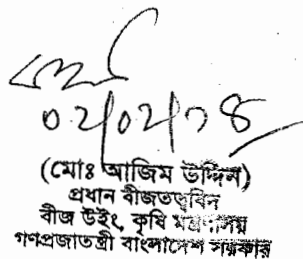 ০২/০২/১৪
(মোঃ আজিম উদ্দিন)
প্রধান বীজতত্ত্ববিদ
বীজ উইং, কৃষি মন্ত্রণালয়
গণপ্রজাতন্ত্রী বাংলাদেশ সরকার